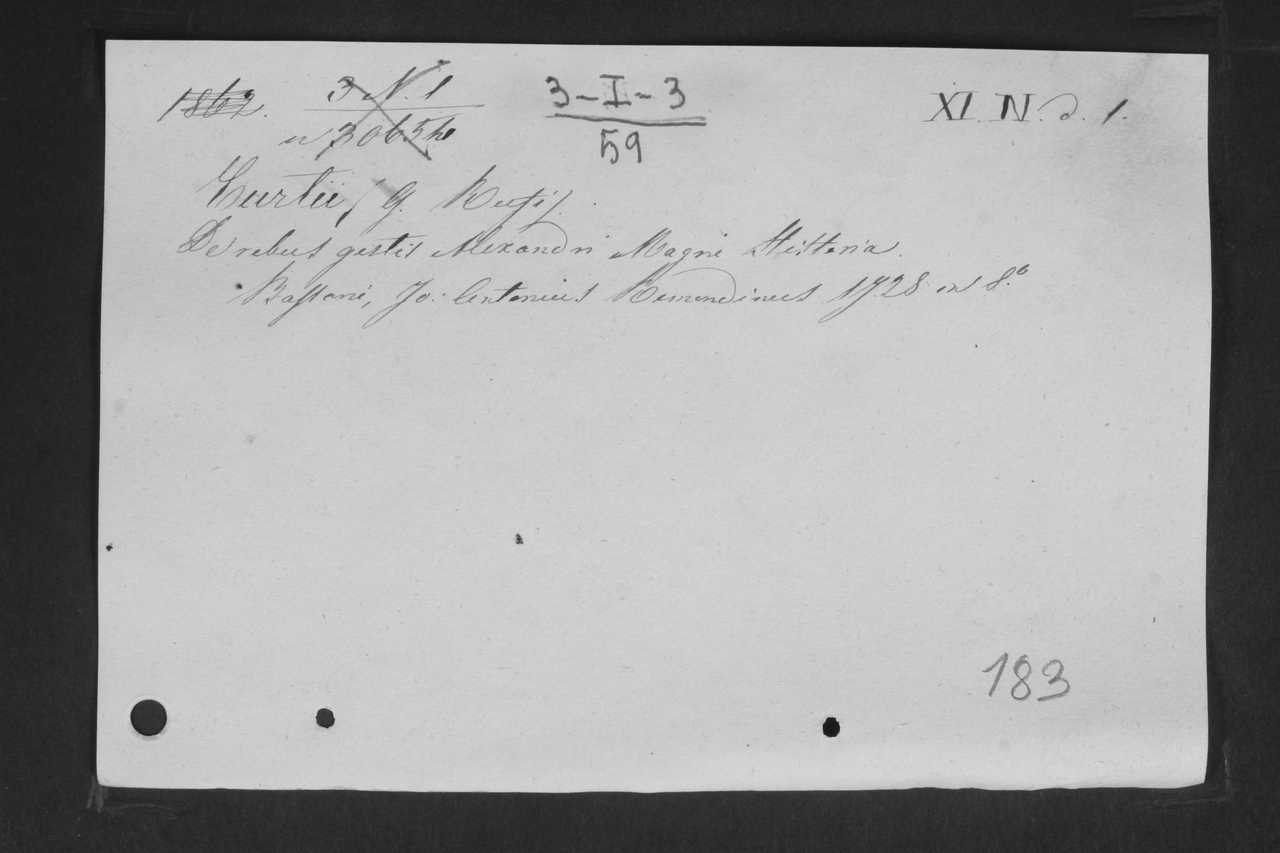 1862.
3 N. 1
3-I-3
59
XI. IV. d. 1.
Curtii, (Q. Rufi).
De rebus gestis Alexandri Magni Historia.
Bassani, Jo: Antonius Remondinus 1728 in 8.º
183